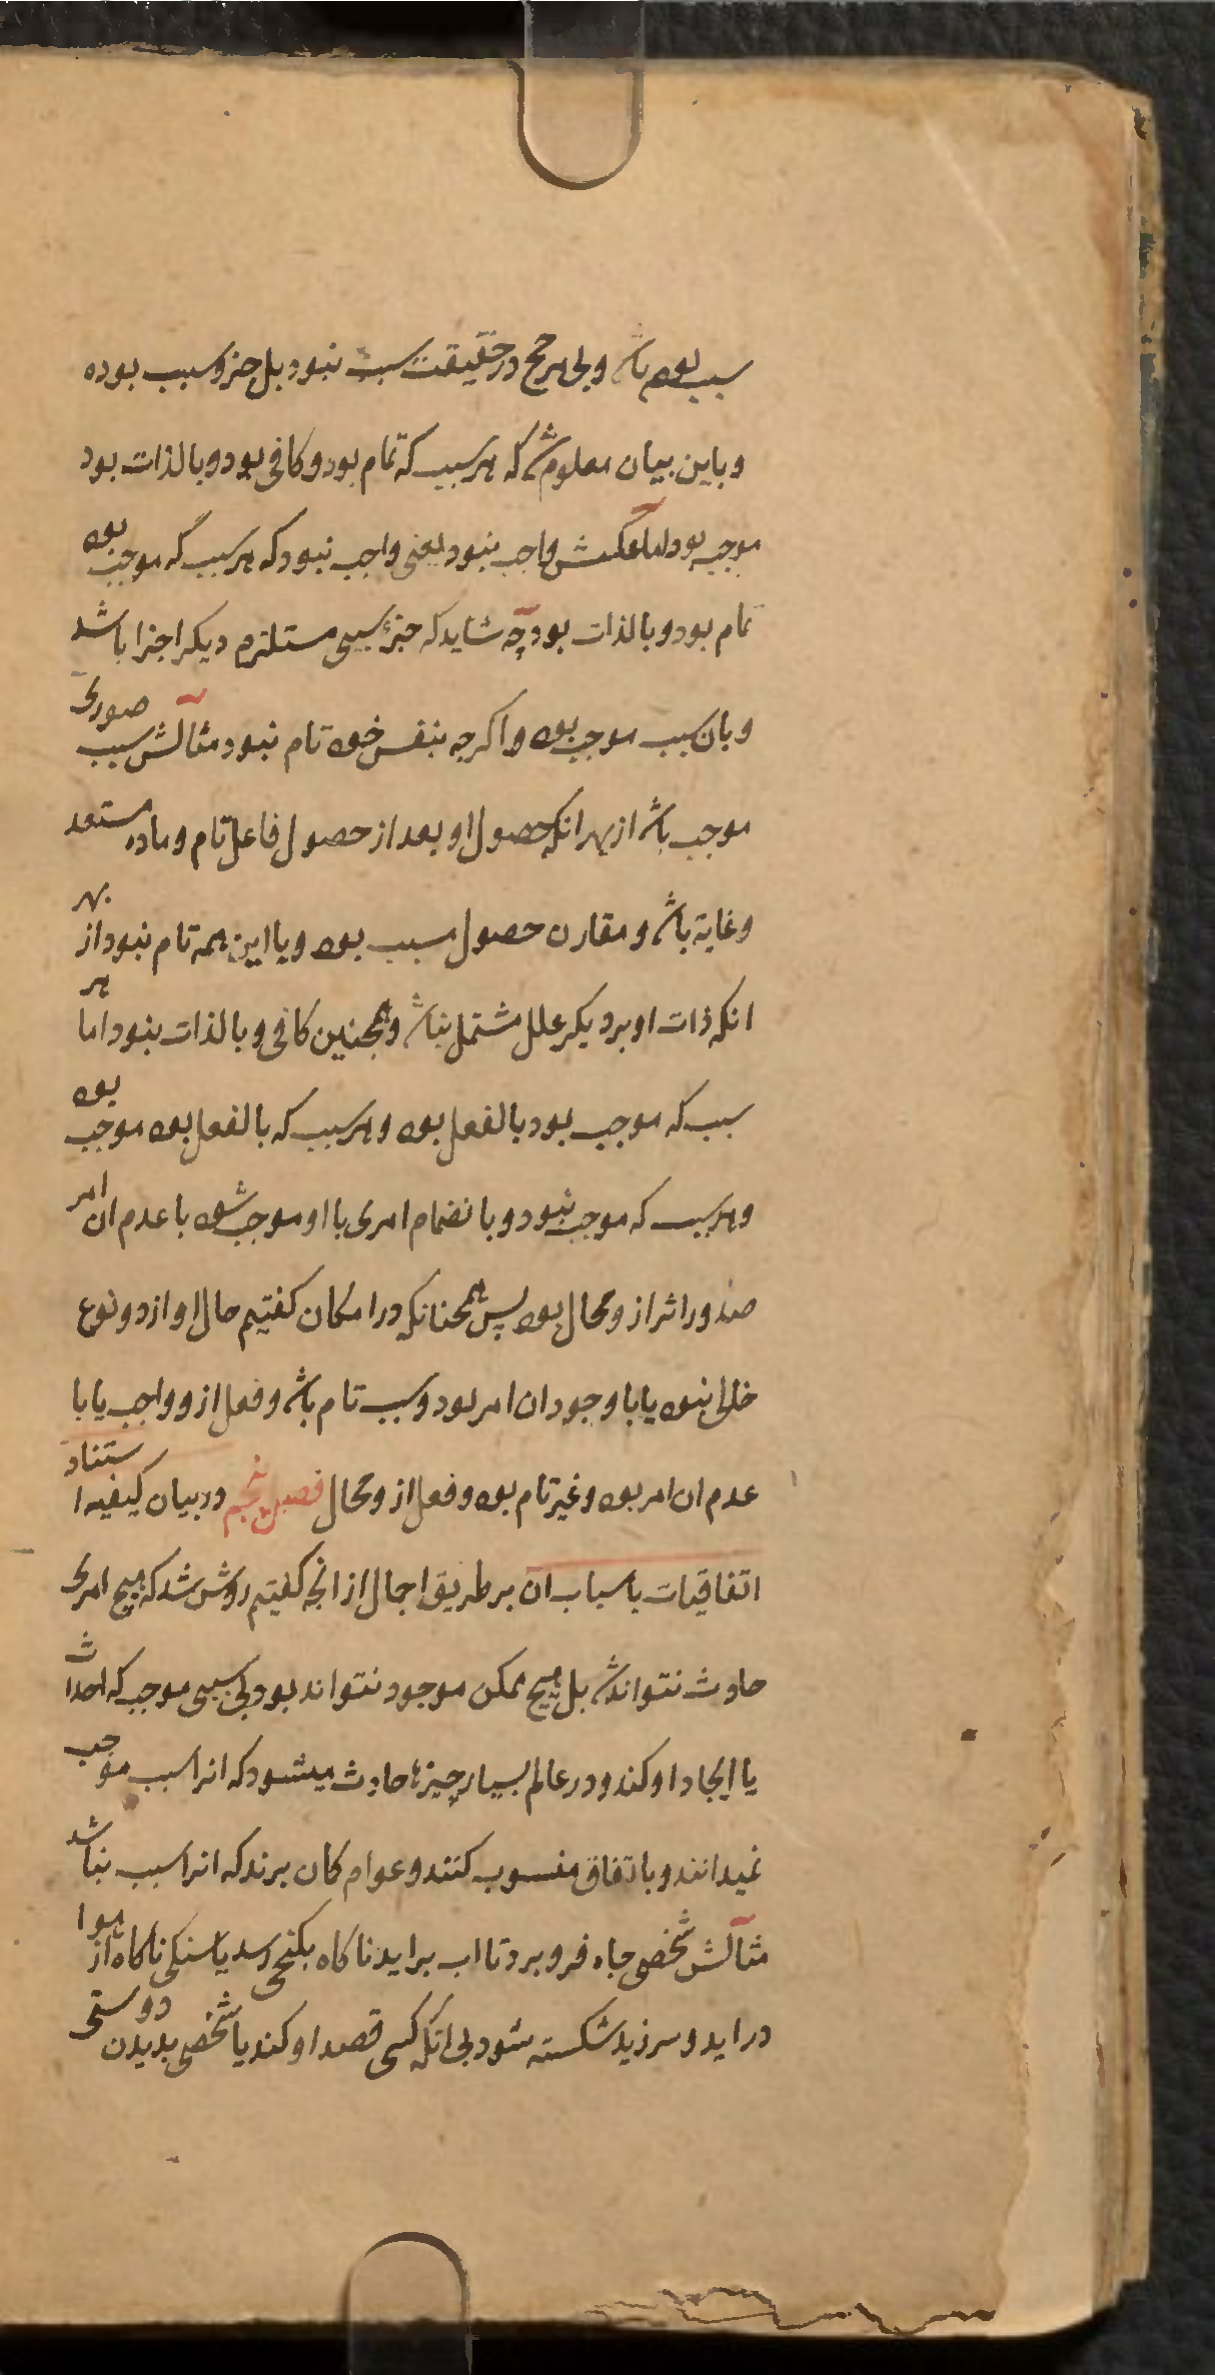 سبب بوده باشد و بی مرجح در حقیقت سبب نبود بل جزو سبب بوده
و باین بیان معلوم شد که هر سبب که تمام بود و کافی بود و بالذات بود
موجب بود اما عکسش واجب نبود یعنی واجب نبود که هر سبب که موجب بود
تمام بود و بالذات بود چه شاید که جزء سببی مستلزم دیگر اجزا باشد
و بان سبب موجب بود و اگرچه بنفس خود تام نبود مثالش سبب صوری
موجب باشد از بهر انکه حصول او بعد از حصول فاعل تام و ماده مستعد
و غایة باشد و مقارن حصول مسبب بود و با این همه تام نبود از بهر
انکه ذات او بر دیگر علل مشتمل نباشد و همچنین کافی و بالذات نبود اما هر
سبب که موجب بود بالفعل بود و هر سبب که بالفعل بود موجب بود
و هر سبب که موجب نبود و بانضمام امری با او موجب شود با عدم ان امر
صدور اثر ازو محال بود پس همچنانکه در امکان گفتیم حال او از دو نوع
خالی نبود یا با وجود ان امر بود و سبب تام باشد و فعل ازو واجب یا با
عدم ان امر بود و غیر تام بود و فعل ازو محال فصل پنجم در بیان کیفیة استناد
اتفاقیات باسباب ان بر طریق اجمال از انچه گفتیم روشن شد که هیچ امری
حادث نتواند شد بل هیچ ممکن موجود نتواند بود بی سببی موجب که احداث
یا ایجاد او کند و در عالم بسیار چیزها حادث میشود که انرا سبب موجب
نمیدانند و باتفاق منسوب کنند و عوام کان برند که انرا سبب نباشد
مثالش شخصی چاه فرو برد تا اب براید ناکاه بکنجی رسد یا سنکی ناکاه از هوا
در اید و سر زید شکسته شود بی انکه کسی قصد او کند یا شخصی بدیدن دوستی